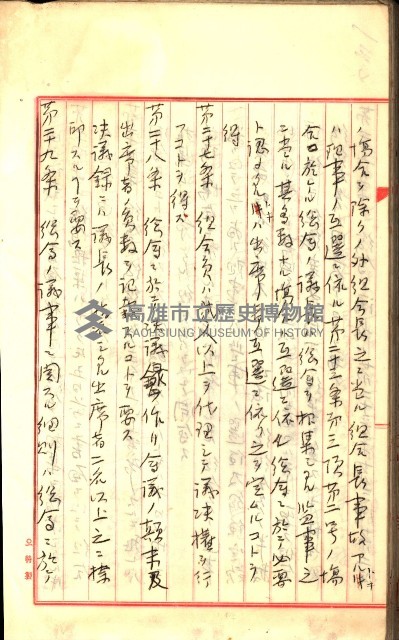 ノ場合ヲ除クノ外組合長之ニ当ル組合長事故アルトキ
ハ理事ノ互選ニ依ル第二十二条第三項第二号ノ場
合ニ於ケル総会ノ議長ハ総会ヲ招集シタル監事之
ニ当ル其多数ナル場合互選ニ依ル総会ニ於テ必要
ト認メタルトキハ出席者ノ互選ニ依リ之ヲ定ムルコトヲ
得
第二十七条 組合員ハ 人以上ヲ代理シテ議決権ヲ行
フコトヲ得ズ
第二十八条 総会ニ於テハ決議録ヲ作リ会議ノ顛末及
出席者ノ員数ヲ記載スルコトヲ要ス
決議録ニハ議長ノ 出席者二名以上之ニ
印スルコトヲ要ス
第二十九条 総会ノ議事ニ関スル細則ハ総会ニ於テ
高雄市立歷史博物館
KAOHSIUNG MUSEUM OF HISTORY